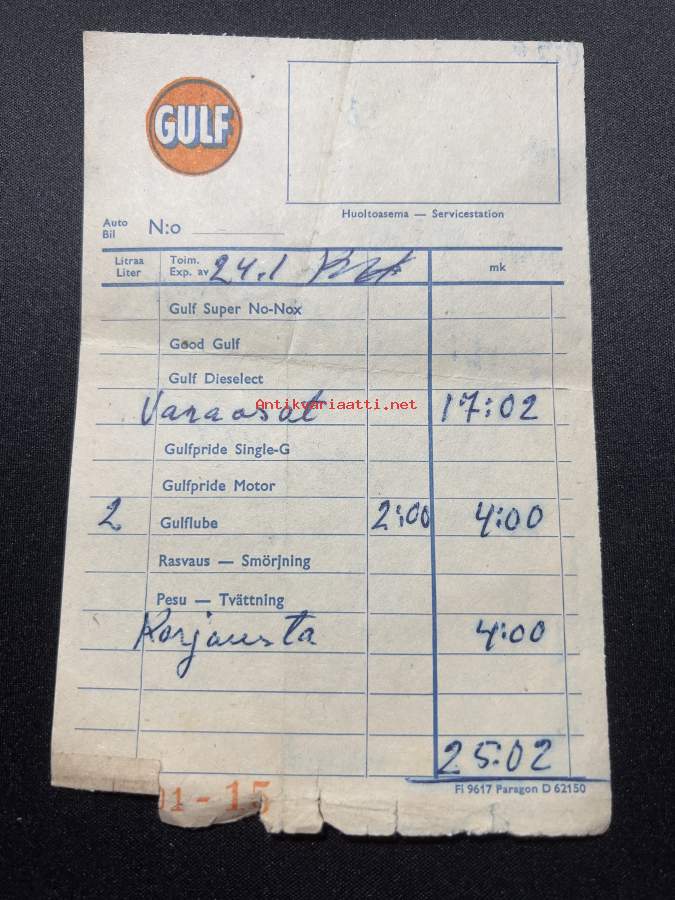 GULF
Huoltoasema — Servicestation
Auto
Bil
N:o
Litraa
Liter
Toim.
Exp. av
24.1
mk
Gulf Super No-Nox
Good Gulf
Gulf Dieselect
Antikvariaatti.net
Varaosat 17:02
Gulfpride Single-G
Gulfpride Motor
2 Gulflube 2:00 4:00
Rasvaus — Smörjning
Pesu — Tvättning
Korjausta 4:00
25:02
Fi 9617 Paragon D 62150
01 - 15